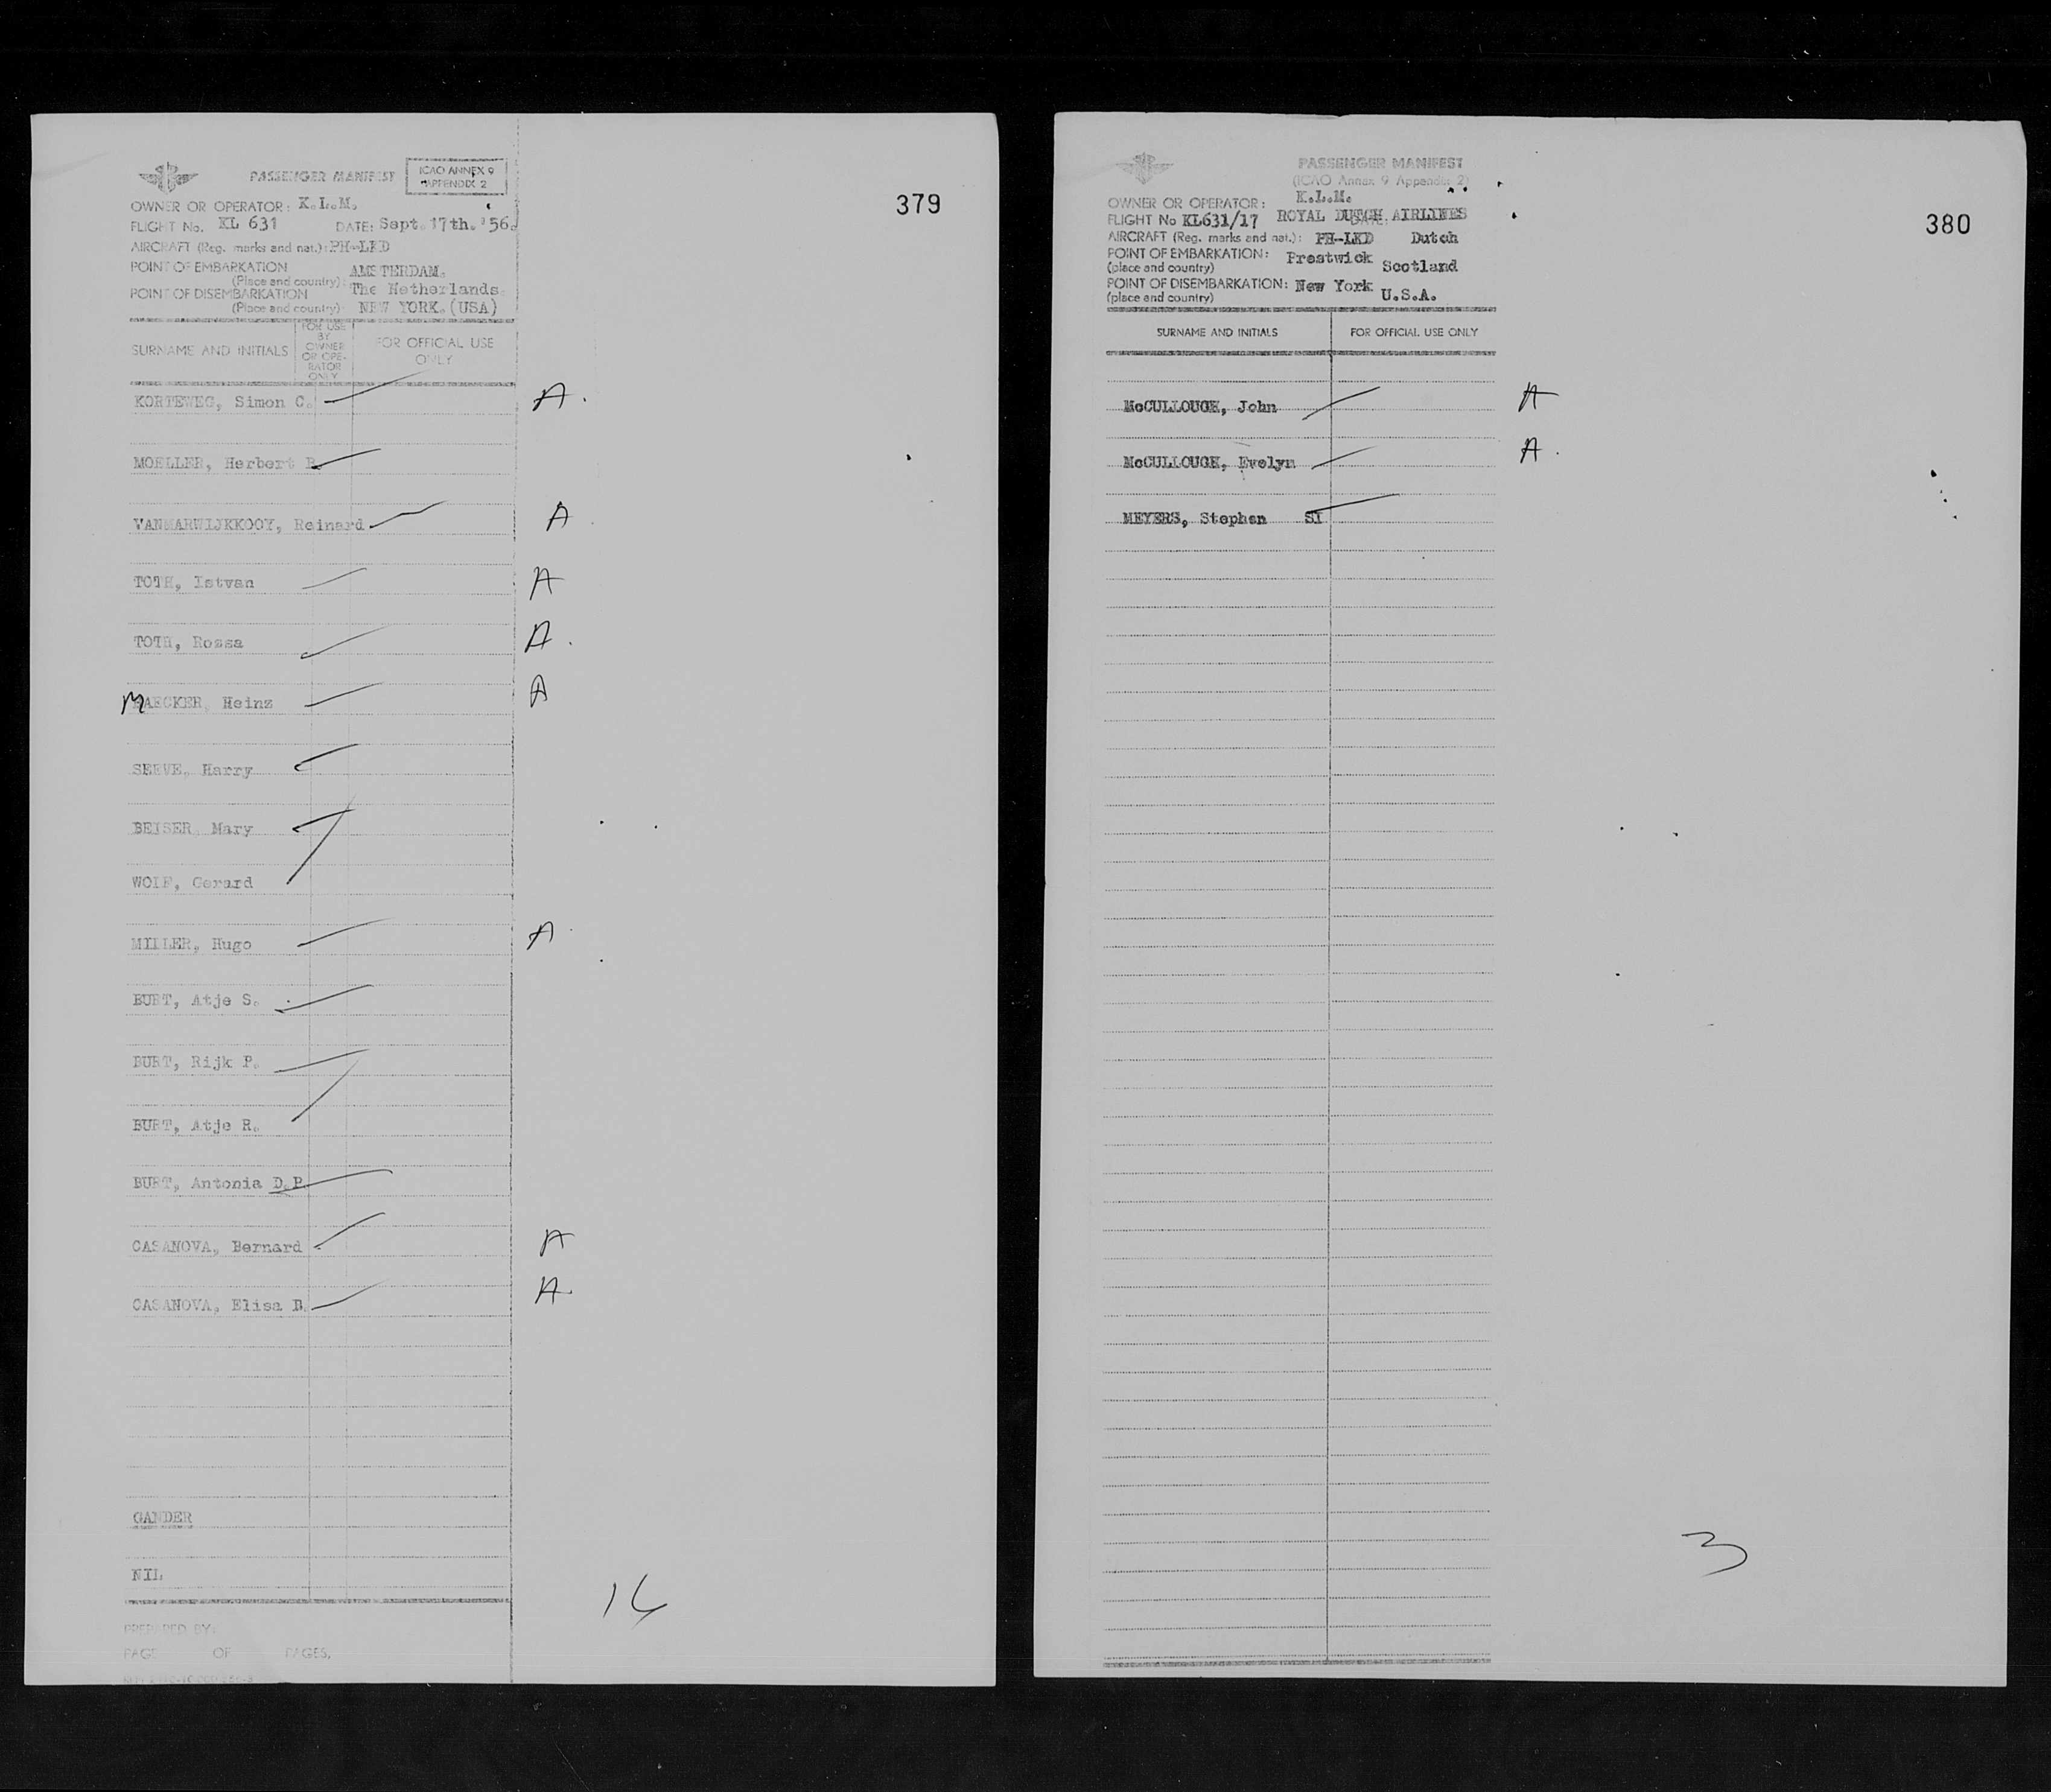 PASSENGER MANIFEST
ICAO ANNEX 9
APPENDIX 2
379
OWNER OR OPERATOR: K.L.M.
FLIGHT No. KL 631 DATE: Sept. 17th. '56.
AIRCRAFT (Reg. marks and nat.): PH-LKD
POINT OF EMBARKATION AMSTERDAM.
(Place and country): The Netherlands
POINT OF DISEMBARKATION
(Place and country): NEW YORK. (USA)
SURNAME AND INITIALS
FOR USE
BY
OWNER
OR OPE-
RATOR
ONLY
FOR OFFICIAL USE
ONLY
KORTEWEG, Simon C. A.
MOELLER, Herbert
VANMARWIJKKOOY, Reinard A
TOTH, Istvan A
TOTH, Rossa A.
MAECKER, Heinz A
SEEVE, Harry
BEISER, Mary
WOLF, Gerard
MILLER, Hugo A
BURT, Atje S.
BURT, Rijk P.
BURT, Atje R.
BURT, Antonia D.P.
CASANOVA, Bernard A
CASANOVA, Elisa B. A.
GANDER
NIL
16
PREPARED BY:
PAGE OF PAGES,
PASSENGER MANIFEST
(ICAO Annex 9 Appendix 2)
380
OWNER OR OPERATOR: K.L.M.
FLIGHT No KL631/17 ROYAL DUTCH AIRLINES
DATE:
AIRCRAFT (Reg. marks and nat.): PH-LKD Dutch
POINT OF EMBARKATION: Prestwick
(place and country) Scotland
POINT OF DISEMBARKATION: New York
(place and country) U.S.A.
SURNAME AND INITIALS FOR OFFICIAL USE ONLY
McCULLOUGH, John A
McCULLOUGH, Evelyn A.
MEYERS, Stephen SI
3